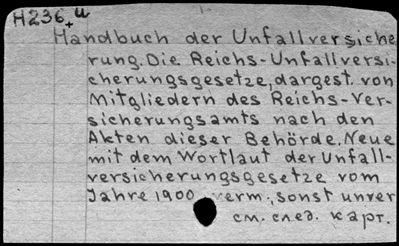 H236,u
Handbuch der Unfallversiche
rung. Die Reichs-Unfallversi-
cherungsgesetze, dargest. von
Mitgliedern des Reichs-Ver-
sicherungsamts nach den
Akten dieser Behörde. Neue
mit dem Wortlaut der Unfall-
versicherungsgesetze vom
Jahre 1900 verm., sonst unver
см. след. карт.